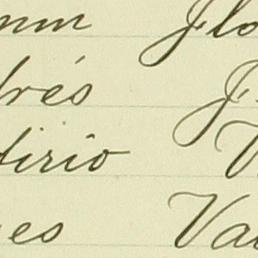 mm Flo
drés F
dirio V
es Va